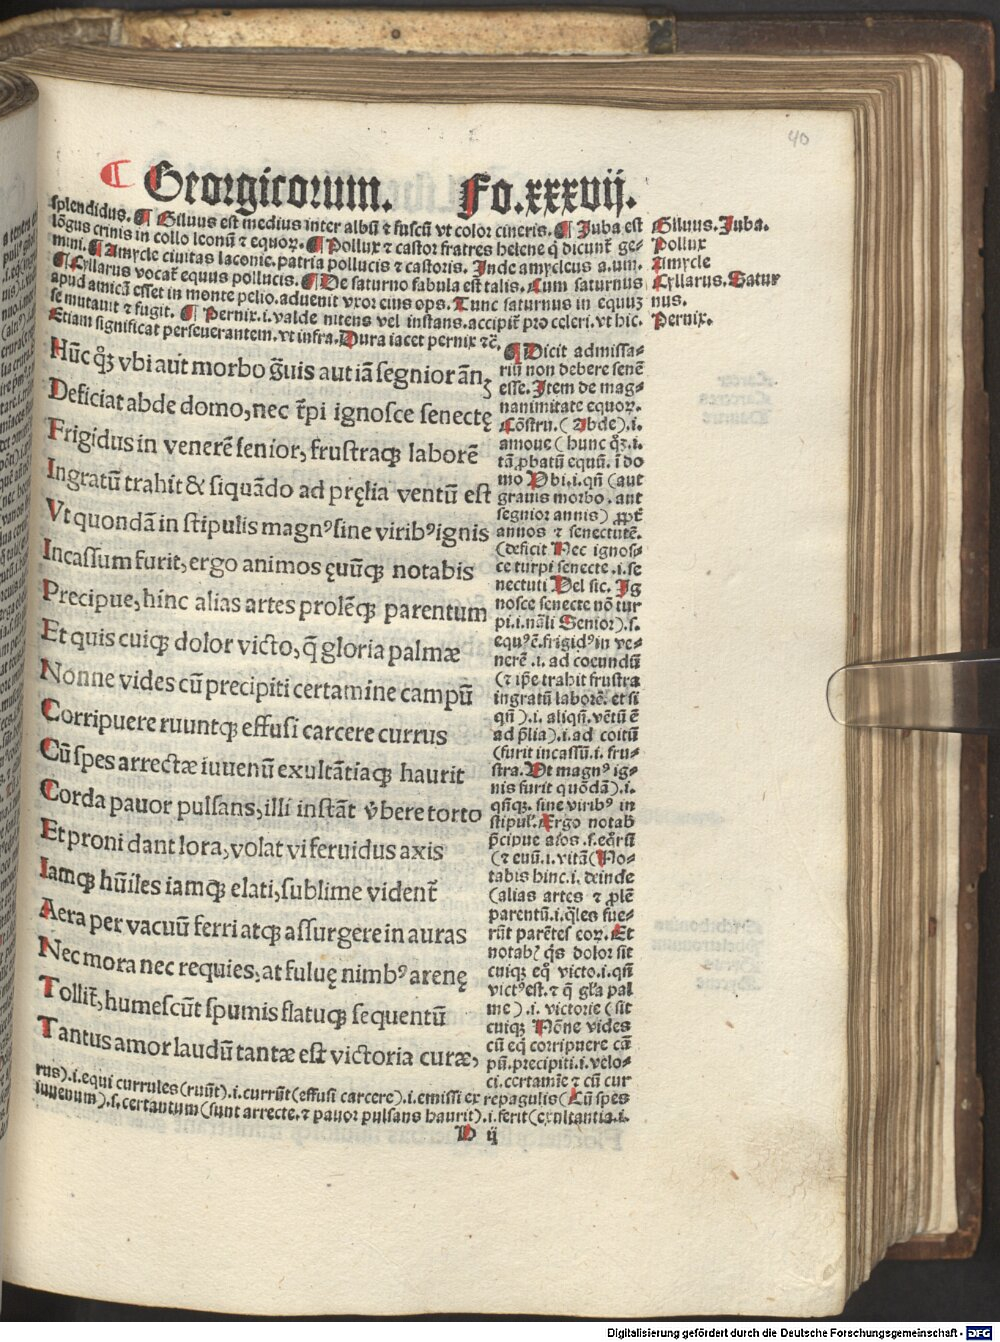 40
Georgicorum. Fo.xxxvij.
splendidus. ¶ Giluus est medius inter albū ⁊ fuscū vt color cineris. ¶ Juba est
lōgus crinis in collo leonū ⁊ equoꝝ. ¶ Pollux ⁊ castor fratres helene q̇ dicunt̄ ge-
mini. ¶ Amycle ciuitas laconie. patria pollucis ⁊ castoris. Inde amycleus a.um.
¶ Cyllarus vocat̄ equus pollucis. ¶ De saturno fabula est talis. Cum saturnus
apud amicā esset in monte pelio. aduenit vxor eius ops. Tunc saturnus in equuꝫ
se mutauit ⁊ fugit. ¶ Pernix .i. valde nitens vel instans. accipit̄ pro celeri. vt hic.
Etiam significat perseuerantem. vt infra. Dura iacet pernix ⁊c̄.
Giluus. Juba.
Pollux
Amycle
Cyllarus. Satur
nus.
Pernix.
Hūc qꝫ vbi aut morbo g̃uis aut iā segnior ānꝫ
Deficiat abde domo, nec t̄pi ignosce senectę
Frigidus in venerē senior, frustraqꝫ laborē
Ingratū trahit & siquādo ad pręlia ventū est
Vt quondā in stipulis magnꝰ sine viribꝰ ignis
Incassum furit, ergo animos ęuūqꝫ notabis
Precipue, hinc alias artes prolēqꝫ parentum
Et quis cuiqꝫ dolor victo, q̄ gloria palmæ
Nonne vides cū precipiti certamine campū
Corripuere ruuntqꝫ effusi carcere currus
Cū spes arrectæ iuuenū exultātiaqꝫ haurit
Corda pauor pulsans, illi instāt v̄bere torto
Et proni dant lora, volat vi feruidus axis
Iamqꝫ hūiles iamqꝫ elati, sublime vident̄
Aera per vacuū ferri atqꝫ assurgere in auras
Nec mora nec requies, at fuluę nimbꝰ arenę
Tollit̄, humescūt spumis flatuqꝫ sequentū
Tantus amor laudū tantæ est victoria curæ,
¶ Dicit admissa-
riū non debere senē
esse. Item de mag-
nanimitate equoꝝ.
Cōstru. (Abde) .i.
amoue (hunc qꝫ .i.
tā ꝓbatū equū. ī do
mo Vbi .i. qñ (aut
grauis morbo. aut
segnior annis) ꝓpt̄
annos ⁊ senectutē.
(deficit Nec ignos-
ce turpi senecte .i. se
nectuti Vel sic. Ig
nosce senecte nō tur
pi .i. nāli Senior) .s.
equꝰ ē. frigidꝰ in ve-
nerē .i. ad coeundū
(⁊ ip̄e trahit frustra
ingratū laborē. et si
qñ) .i. aliqñ. vētū ē
ad p̄lia) .i. ad coitū
(furit incassū .i. fru-
stra. Vt magnꝰ ig-
nis furit quōdā) .i.
qñqꝫ. sine viribꝰ in
stipul'. Ergo notab̄
p̄cipue aīos .s. eq̄rū
(⁊ euū .i. vitā (No-
tabis hinc .i. deinde
(alias artes ⁊ ꝓlē
parentū .i. q̄les fue-
rūt parētes eoꝝ. Et
notab̄ q̇s dolor sit
cuiqꝫ eq̇ victo .i. qñ
victꝰ est. ⁊ q̄ gl̄a pal
me) .i. victorie (sit
cuiqꝫ Nōne vides
cū eq̇ corripuere cā
pū. precipiti .i. velo-
ci. certamīe ⁊ cū cur
rus) .i. equi currules (ruūt) .i. currūt (effusi carcere) .i. emissi ex repagulis (Cū spes
iuuenum) .s. certantum (sunt arrecte. ⁊ pauor pulsans haurit) .i. ferit (exultantia .i.
D ij
Digitalisierung gefördert durch die Deutsche Forschungsgemeinschaft - DFG